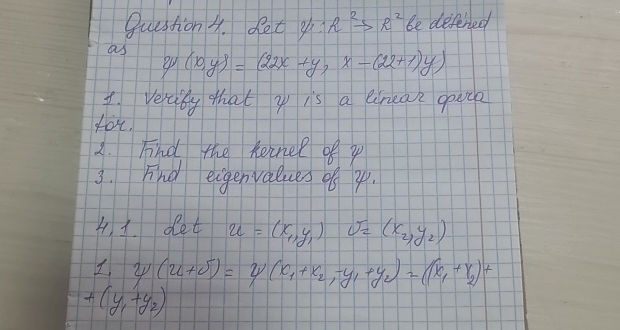 Question 4. Let ψ: R² → R² be defined
as
ψ(x,y) = (22x + y, x - (22+1)y)
1. Verify that ψ is a linear opera
tor.
2. Find the kernel of ψ
3. Find eigenvalues of ψ.
4.1. Let u = (x₁,y₁) v = (x₂,y₂)
1. ψ(u+v) = ψ(x₁+x₂, y₁+y₂) = ((x₁+x₂)+
+(y₁+y₂)